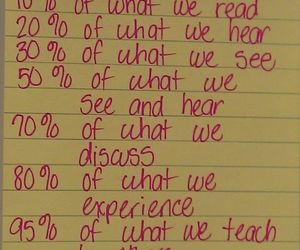 10% of what we read
20% of what we hear
30% of what we see
50% of what we
see and hear
70% of what we
discuss
80% of what we
experience
95% of what we teach